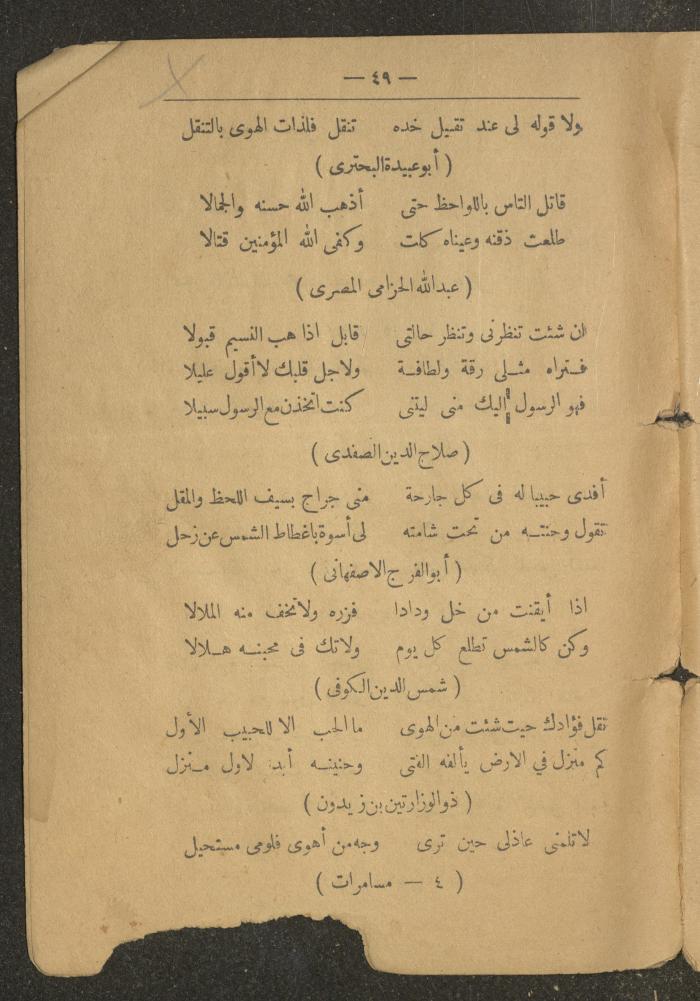 — ٤٩ —
ولا قوله لى عند تقبيل خده تنقل فلذات الهوى بالتنقل
( أبو عبيدة البحترى )
قاتل الناس باللواحظ حتى أذهب الله حسنه والجمالا
طلعت ذقنه وعيناه كلت وكفى الله المؤمنين قتالا
( عبدالله الحزامى المصرى )
ان شئت تنظرنى وتنظر حالتى قابل اذا هب النسيم قبولا
فتراه مثلى رقة ولطافة ولاجل قلبك لا أقول عليلا
فهو الرسول اليك منى ليتنى كنت اتخذت مع الرسول سبيلا
( صلاح الدين الصفدى )
أفدى حبيبا له فى كل جارحة منى جراح بسيف اللحظ والمقل
تقول وجنته من تحت شامته لى أسوة بانحطاط الشمس عن زحل
( أبو الفرج الاصفهانى )
اذا أيقنت من خل ودادا فزره ولا تخف منه الملالا
وكن كالشمس تطلع كل يوم ولا تك فى محبته هلالا
( شمس الدين الكوفى )
نقل فؤادك حيث شئت من الهوى ما الحب الا للحبيب الأول
كم منزل في الارض يألفه الفتى وحنينه أبدا لاول منزل
( ذو الوزارتين بن زيدون )
لا تلمنى عاذلى حين ترى وجه من أهوى فلومى مستحيل
( ٤ — مسامرات )